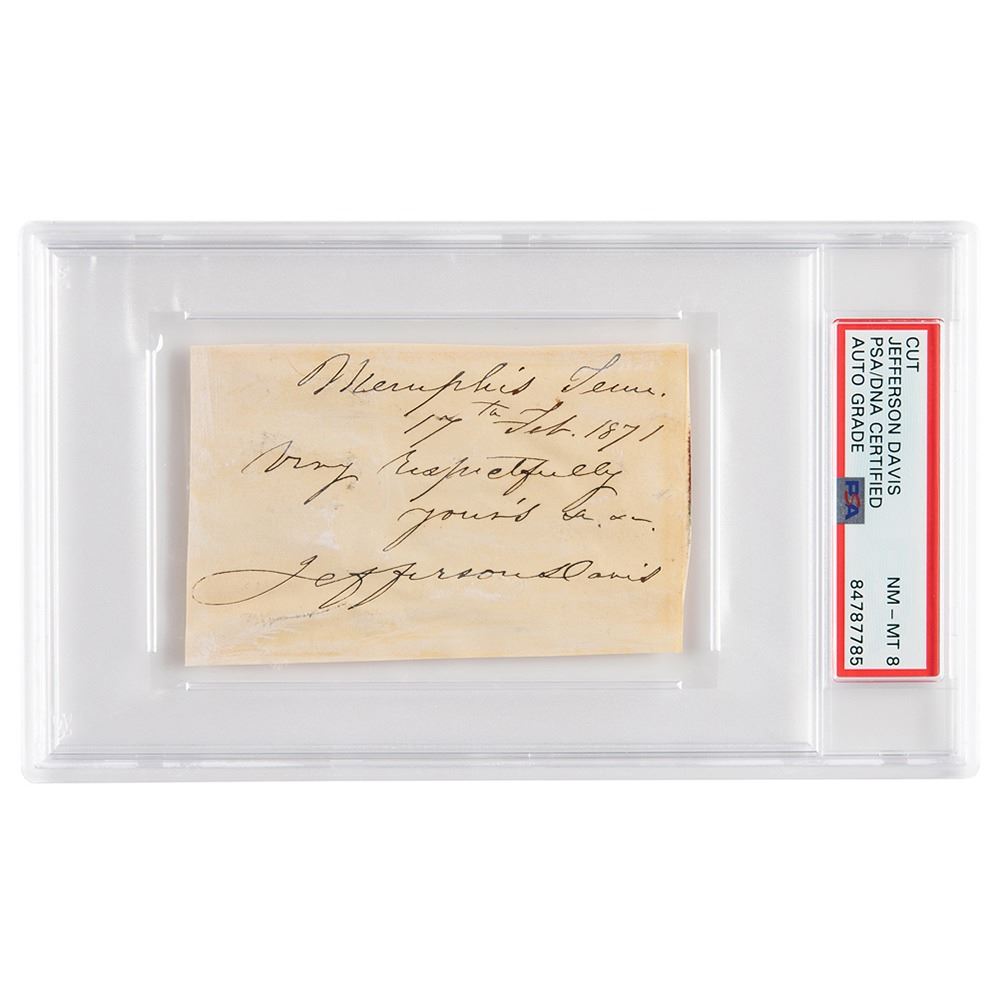 Memphis Tenn.
17th Feb. 1871
Very Respectfully
your's &. &c.
Jefferson Davis
CUT
JEFFERSON DAVIS
PSA/DNA CERTIFIED
AUTO GRADE
NM-MT 8
84787785
PSA